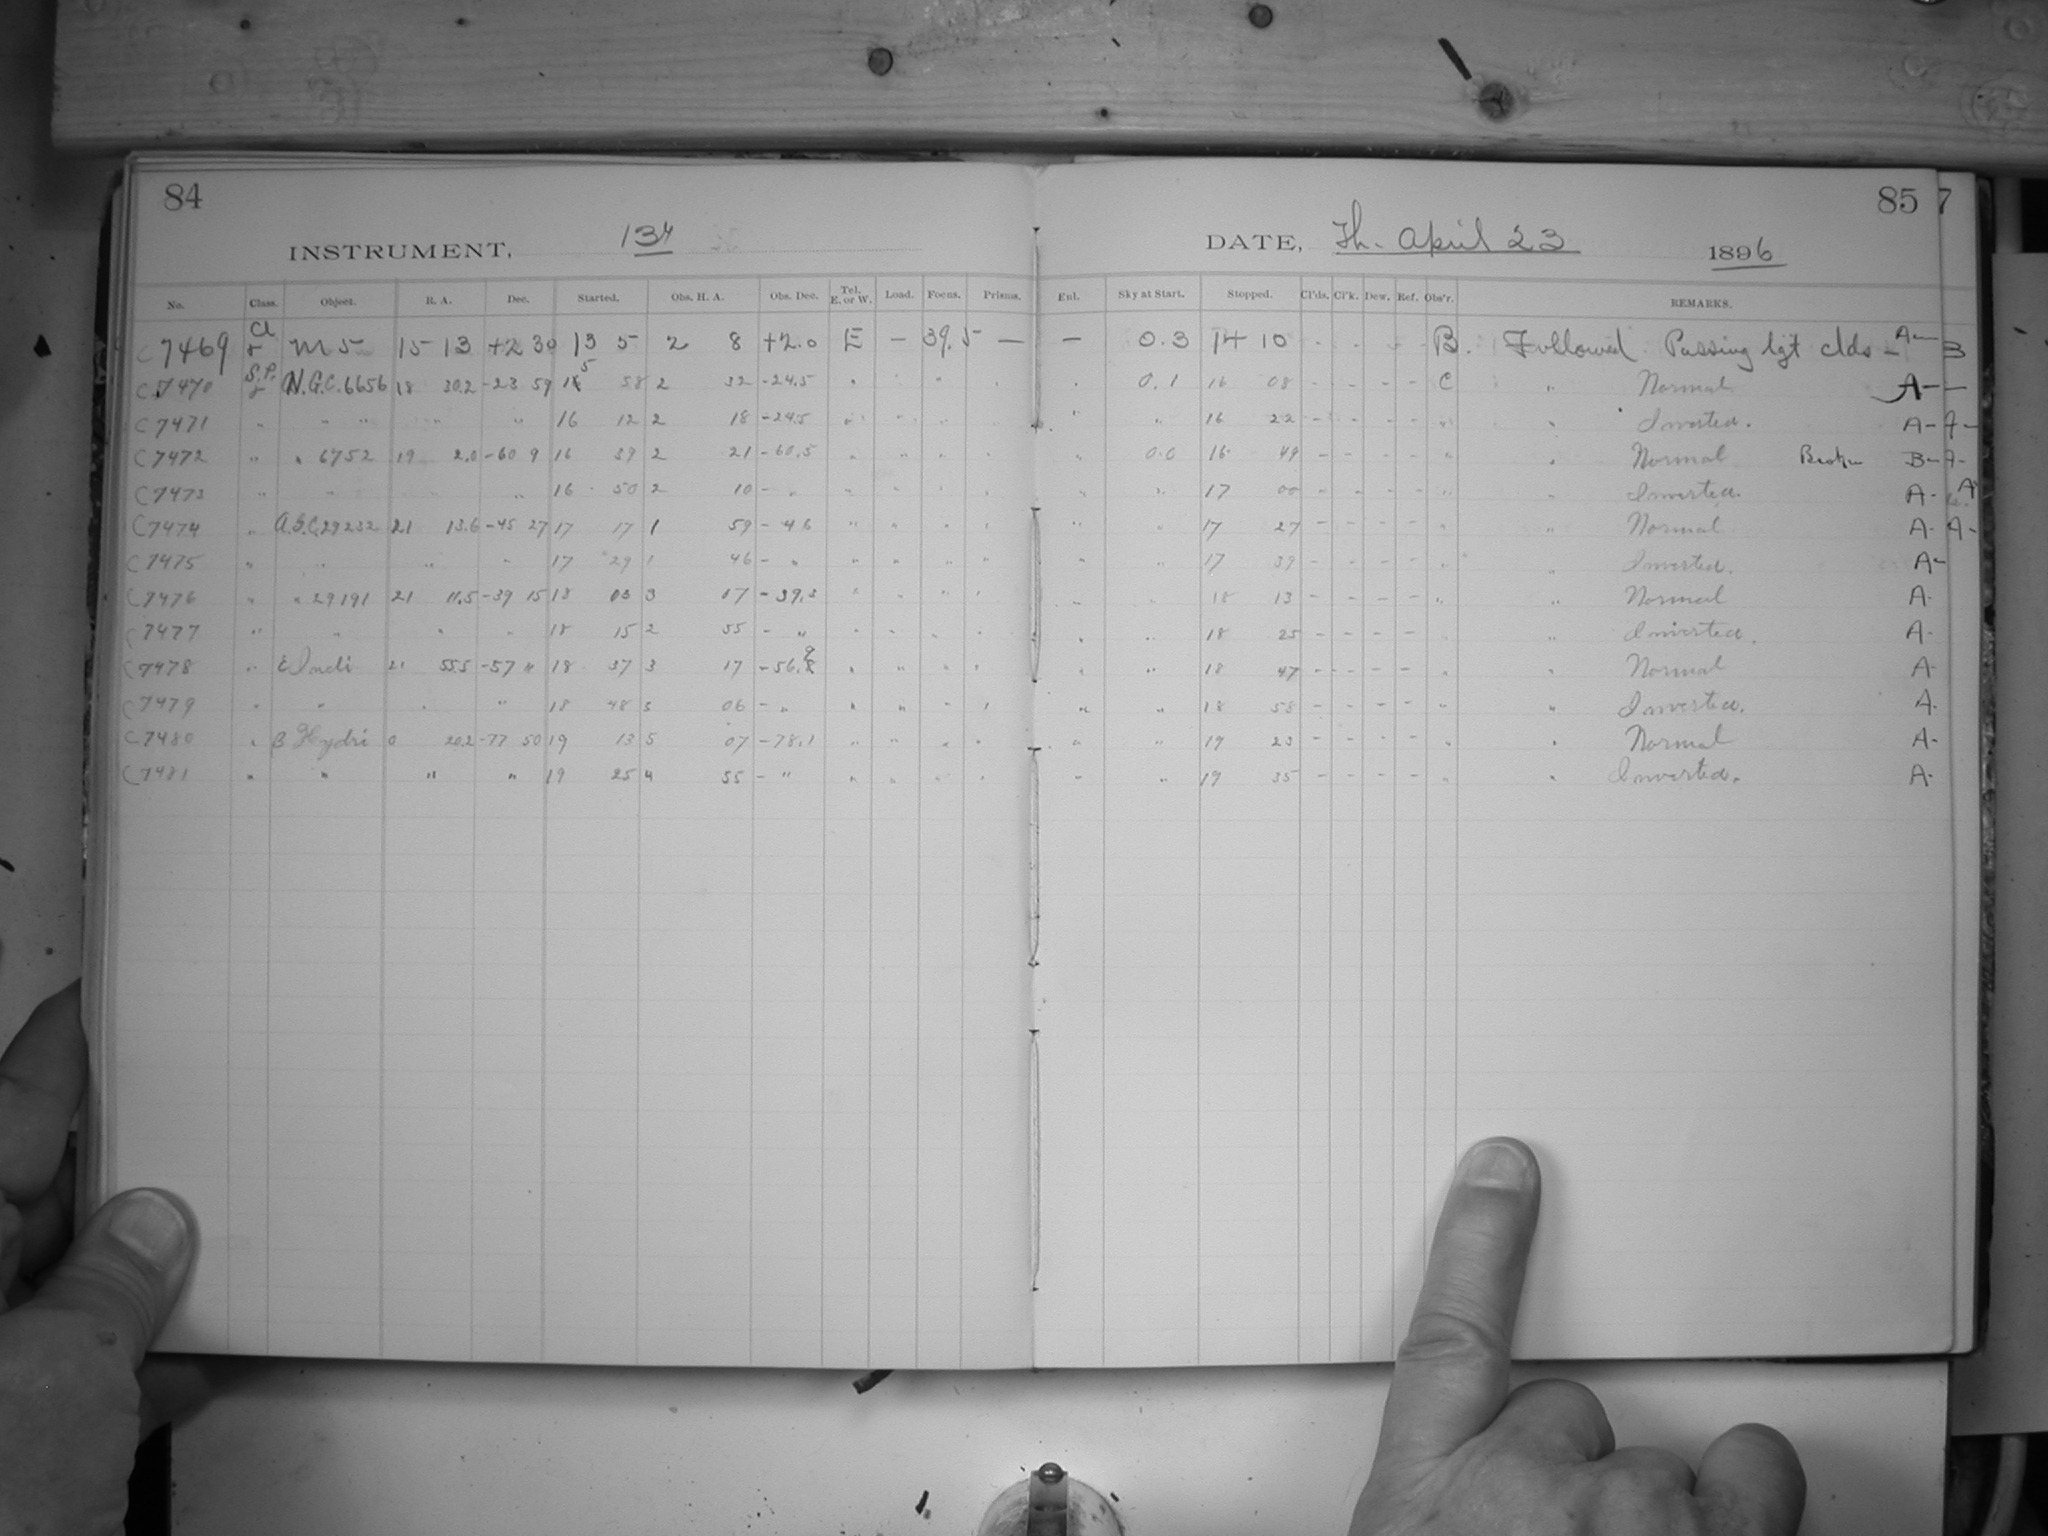 84
85 7
INSTRUMENT, 13"
DATE, Th. April 23 1896
No. Class. Object. R. A. Dec. Started. Obs. H. A. Obs. Dec. Tel. E. or W. Load. Focus. Prisms. Enl. Sky at Start. Stopped. Cl'ds. Cl'k. Dew. Ref. Obs'r. REMARKS.
C 7469 Cl r M 5 15 13 +2 30 13 5 2 8 +2.0 E — 39.5 — — 0.3 14 10 - - - - B. Followed Passing lgt clds — A— B
C 7470 S.P. r N.G.C. 6656 18 30.2 -23 59 15 58 2 32 -24.5 " " " " " 0.1 16 08 - - - - C " Normal A— —
C 7471 " " " " " 16 12 2 18 -24.5 " " " " " " 16 22 - - - - " " Inverted. A- A-
C 7472 " " 6752 19 2.0 -60 9 16 39 2 21 -60.5 " " " " " 0.0 16 49 - - - - " " Normal Broken B- A-
C 7473 " " " " 16 50 2 10 - " " " " " " " 17 00 - - - - " " Inverted. A-
C 7474 " A.G.C. 29232 21 13.6 -45 27 17 17 1 59 -46 " " " " " " 17 27 - - - - " " Normal A- A-
C 7475 " " " " 17 29 1 46 - " " " " " " " 17 39 - - - - " " Inverted. A-
C 7476 " " 29191 21 11.5 -39 15 18 03 3 07 -39.3 " " " " " " 18 13 - - - - " " Normal A-
C 7477 " " " " 18 15 2 55 - " " " " " " " 18 25 - - - - " " Inverted. A-
C 7478 " E Indi 21 55.5 -57 11 18 37 3 17 -56.9 " " " " " " 18 47 - - - - " " Normal A-
C 7479 " " " " 18 48 3 06 - " " " " " " " 18 58 - - - - " " Inverted. A-
C 7480 " B Hydri 0 20.2 -77 50 19 13 5 07 -78.1 " " " " " " 19 23 - - - - " " Normal A-
C 7481 " " " " 19 25 4 55 - " " " " " " " 19 35 - - - - " " Inverted. A-